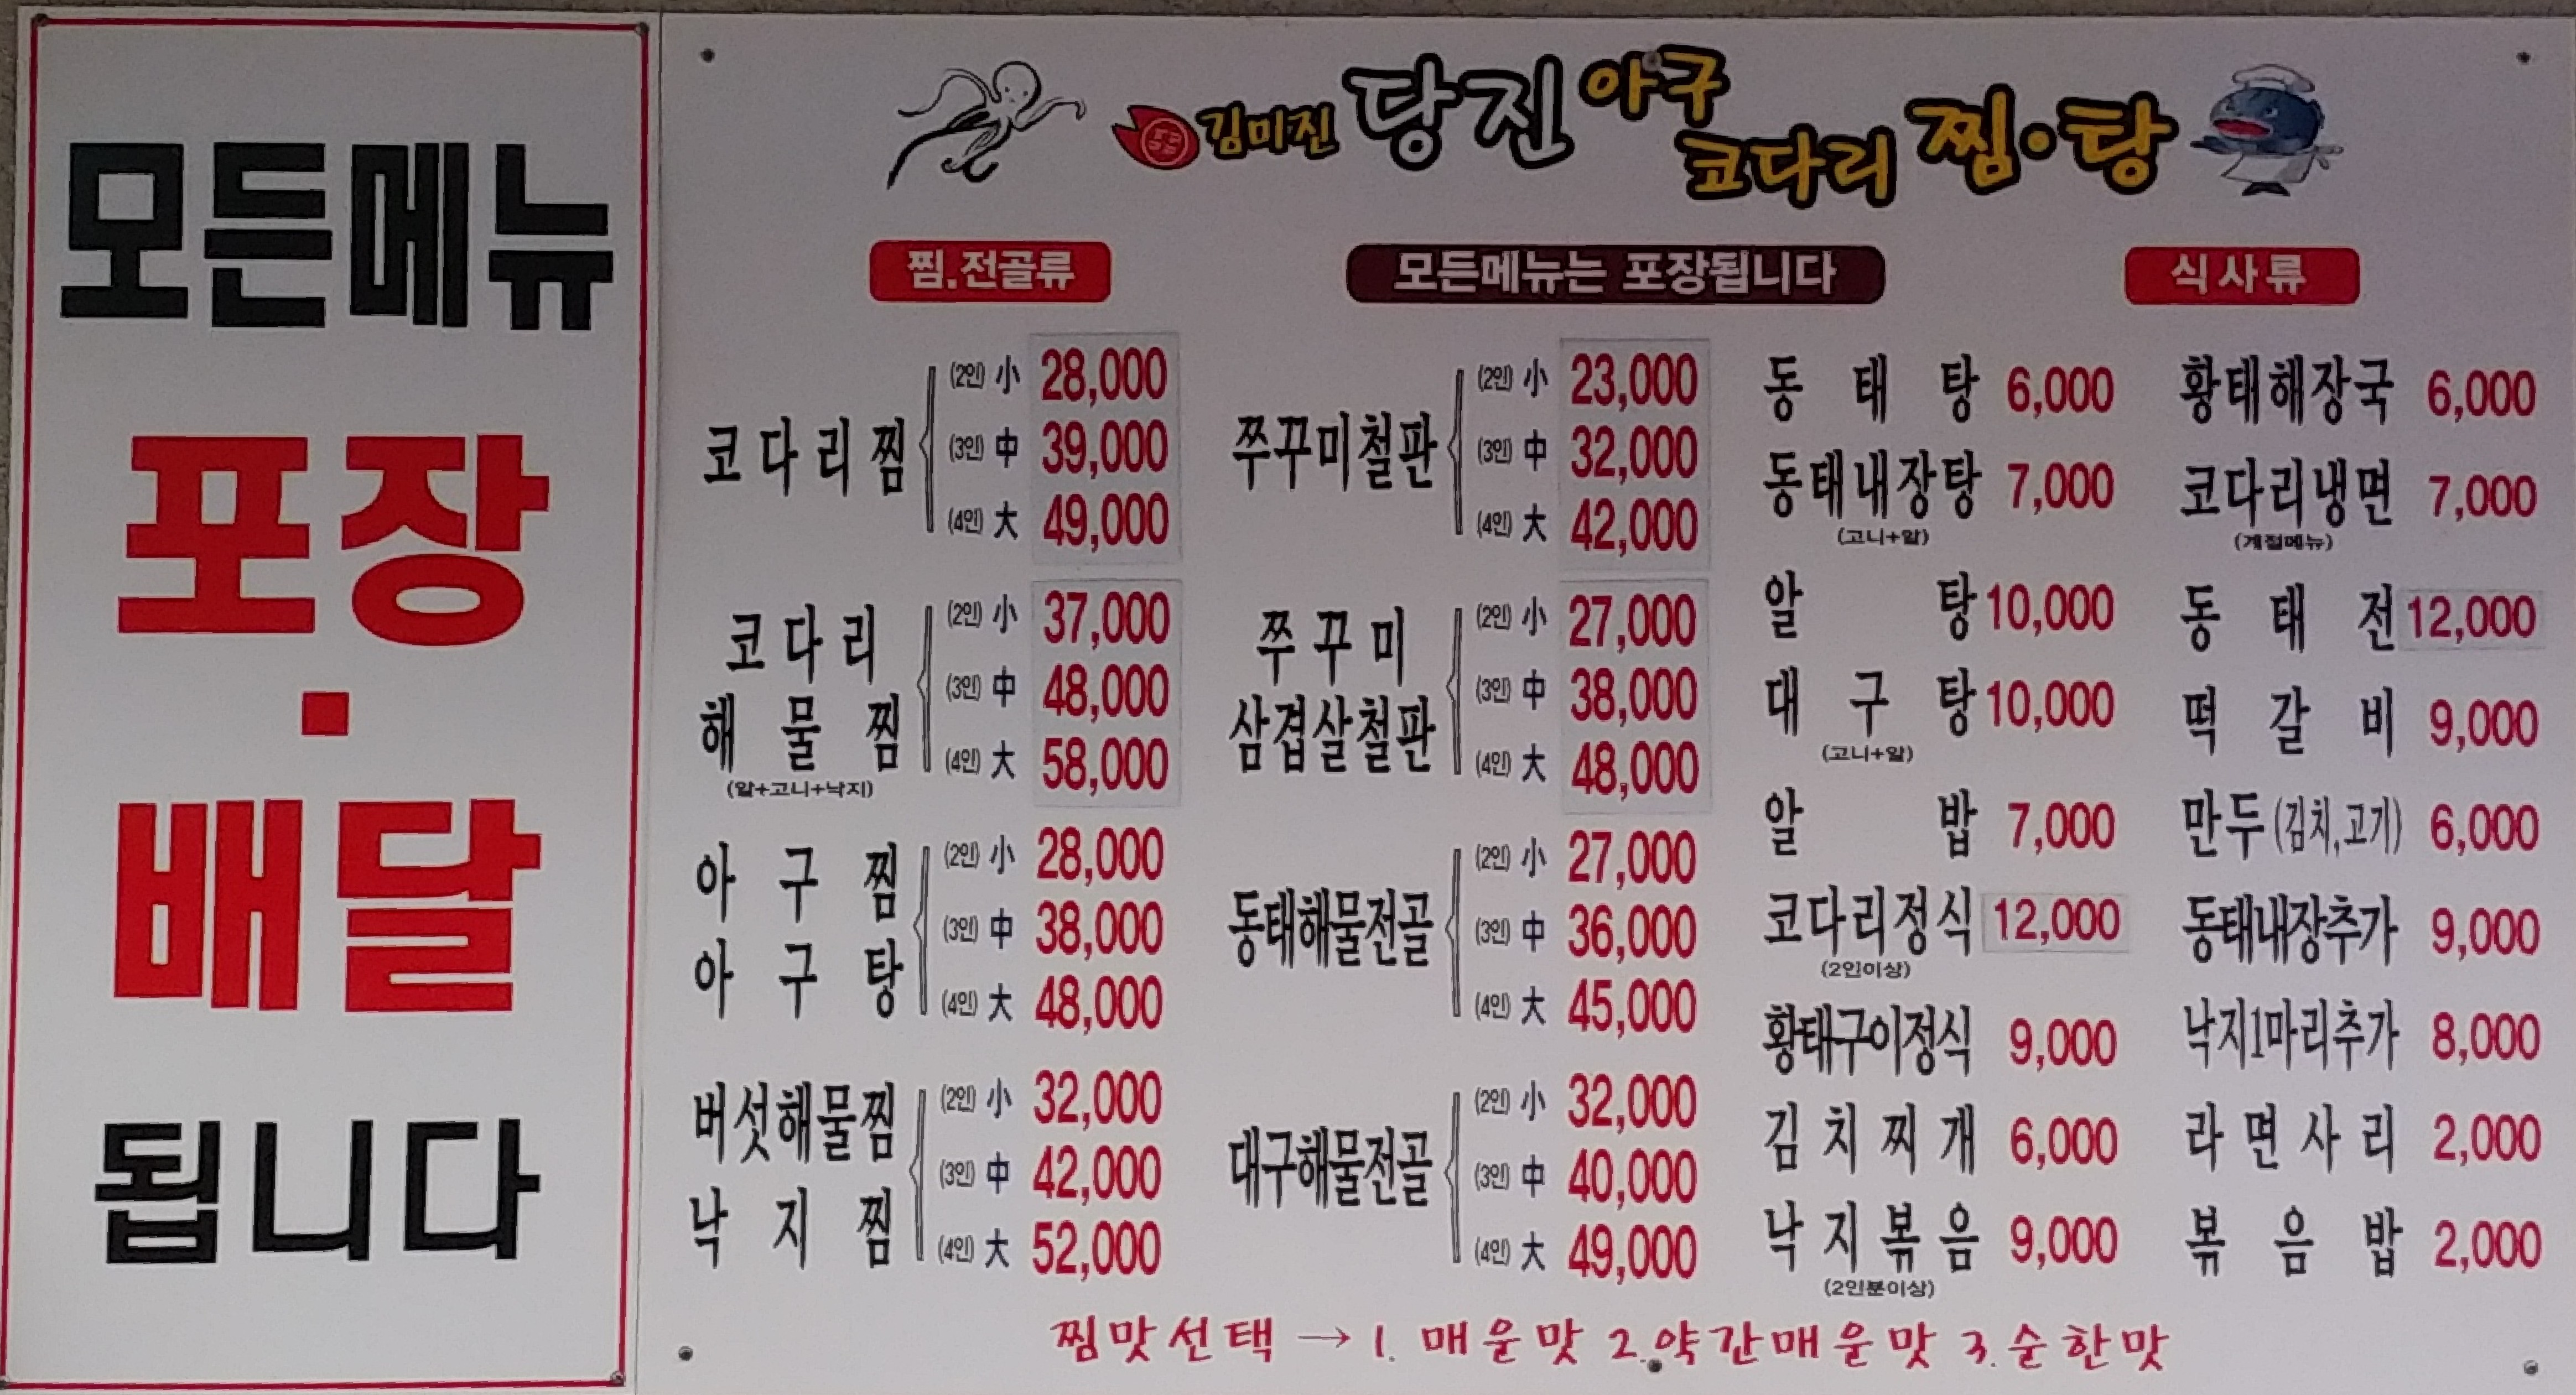 모든메뉴
포장
·
배달
됩니다
김미진 당진 아구 코다리 찜·탕
찜.전골류
모든메뉴는 포장됩니다
식사류
코다리찜
(2인) 小 28,000
(3인) 中 39,000
(4인) 大 49,000
코다리
해물찜
(알+고니+낙지)
(2인) 小 37,000
(3인) 中 48,000
(4인) 大 58,000
아구찜
아구탕
(2인) 小 28,000
(3인) 中 38,000
(4인) 大 48,000
버섯해물찜
낙지찜
(2인) 小 32,000
(3인) 中 42,000
(4인) 大 52,000
쭈꾸미철판
(2인) 小 23,000
(3인) 中 32,000
(4인) 大 42,000
쭈꾸미
삼겹살철판
(2인) 小 27,000
(3인) 中 38,000
(4인) 大 48,000
동태해물전골
(2인) 小 27,000
(3인) 中 36,000
(4인) 大 45,000
대구해물전골
(2인) 小 32,000
(3인) 中 40,000
(4인) 大 49,000
동태탕 6,000
동태내장탕 7,000
(고니+알)
알탕 10,000
대구탕 10,000
(고니+알)
알밥 7,000
코다리정식 12,000
(2인이상)
황태구이정식 9,000
김치찌개 6,000
낙지볶음 9,000
(2인분이상)
황태해장국 6,000
코다리냉면 7,000
(계절메뉴)
동태전 12,000
떡갈비 9,000
만두(김치,고기) 6,000
동태내장추가 9,000
낙지1마리추가 8,000
라면사리 2,000
볶음밥 2,000
찜맛선택 → 1. 매운맛 2. 약간매운맛 3. 순한맛